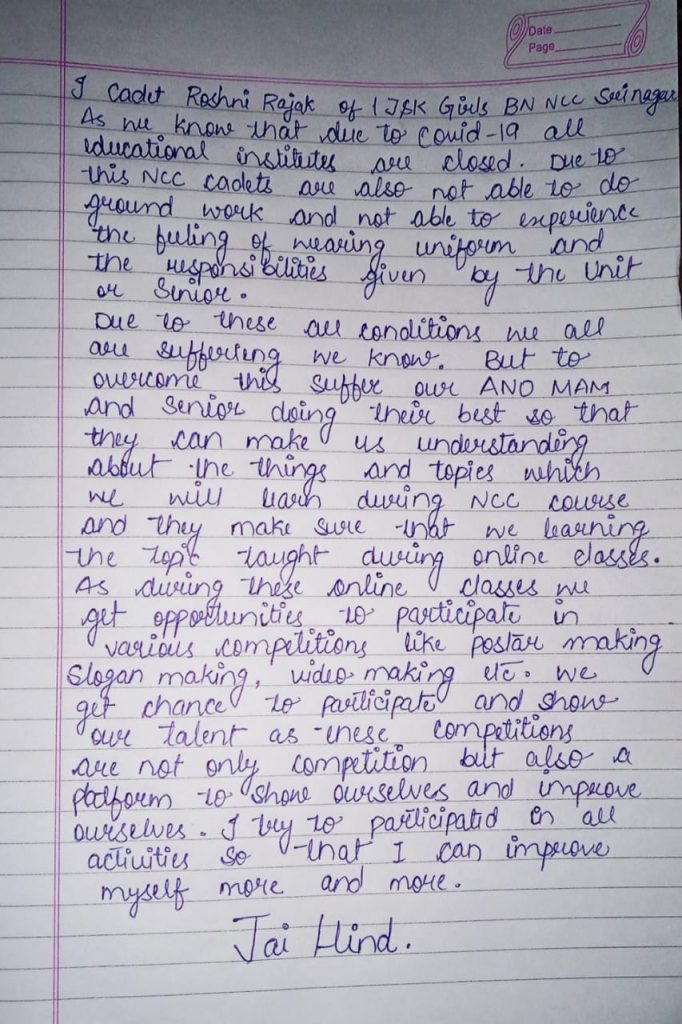 Date
Page
I Cadet Roshni Rajak of 1 J&K Girls BN NCC Srinagar
As we know that due to Covid-19 all
educational institutes are closed. Due to
this NCC cadets are also not able to do
ground work and not able to experience
the feeling of wearing uniform and
the responsibilities given by the Unit
or Senior.
Due to these all conditions we all
are suffering we know. But to
overcome this suffer our ANO MAM
and Senior doing their best so that
they can make us understanding
about the things and topics which
we will learn during NCC course
and they make sure that we learning
the topic taught during online classes.
As during these online classes we
get opportunities to participate in
various competitions like postar making
Slogan making, video making etc. we
get chance to participate and show
our talent as these competitions
are not only competition but also a
platform to show ourselves and improve
ourselves. I try to participated in all
activities so that I can improve
myself more and more.
Jai Hind.